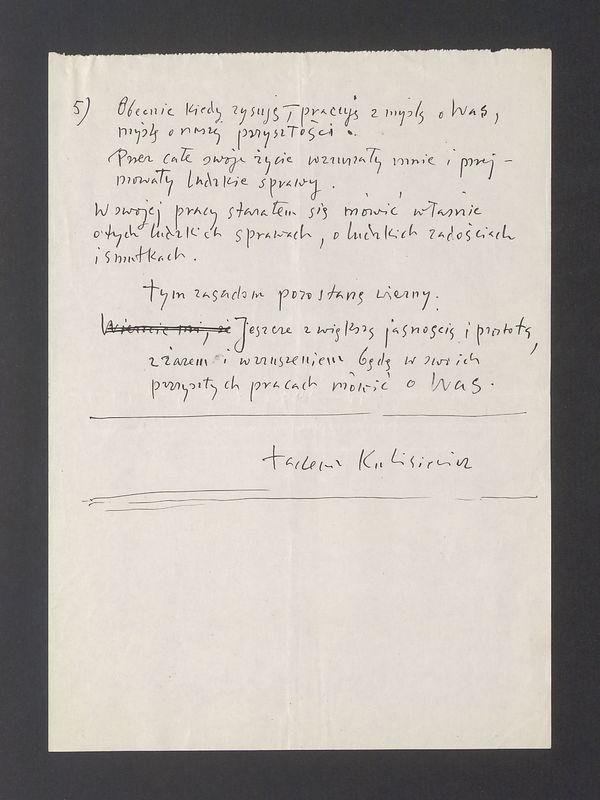 5) Obecnie kiedy rysuję i pracuję z myślą o Was,
myślą o naszej przyszłości.
Przez całe swoje życie wzruszały mnie i przej-
mowały ludzkie sprawy.
W swojej pracy starałem się mówić właśnie
o tych ludzkich sprawach, o ludzkich radościach
i smutkach.
tym zasadom pozostanę wierny.
Wierzcie mi, że Jeszcze z większą jasnością i prostotą,
z żarem i wzruszeniem będę w swoich
przyszłych pracach mówić o Was.
Tadeusz Kulisiewicz